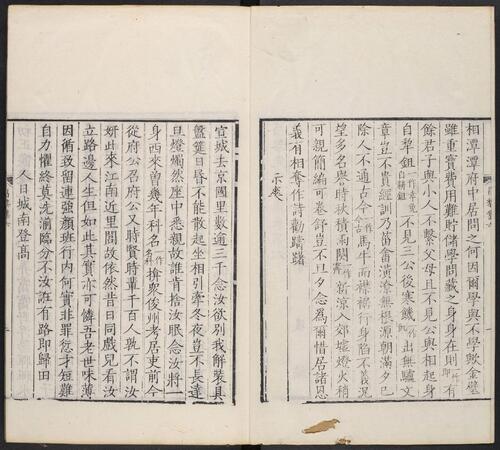 相潭潭府中居問之何因爾學與不學歟金璧
雖重寶費用難貯儲學問藏之身身在則一作即有
餘君子與小人不繫父母且不見公與相起身
自犁鉏一作幸免自耕鉏不見三公後寒饑一作飢出無驢文
章豈不貴經訓乃菑畬潢潦無根源朝滿夕已
除人不通古今一作今古馬牛而襟裾行身陷不義況
望多名譽時秋積雨闋一作霽新涼入郊墟燈火稍
可親簡編可卷舒豈不旦夕念為爾惜居諸恩
義有相奪作詩勸躊躇
示爽
宣城去京國里數逾三千念汝欲別我解裝具
盤筵日昏不能散起坐相引牽冬夜豈不長達
旦燈燭然座中悉親故誰肯捨汝眠念汝將一
身西來曾幾年科名一作名科揜衆俊州考居吏前今
從府公召府公又時賢時輩千百人孰不謂汝
妍此來江南近里閭故依然昔日同戲兒看汝
立路邊人生但如此其實亦可憐吾老世味薄
因循致留連強顏班行內何實非罪愆才短難
自力懼終莫洗湔臨分不汝誑有路即歸田
人日城南登高